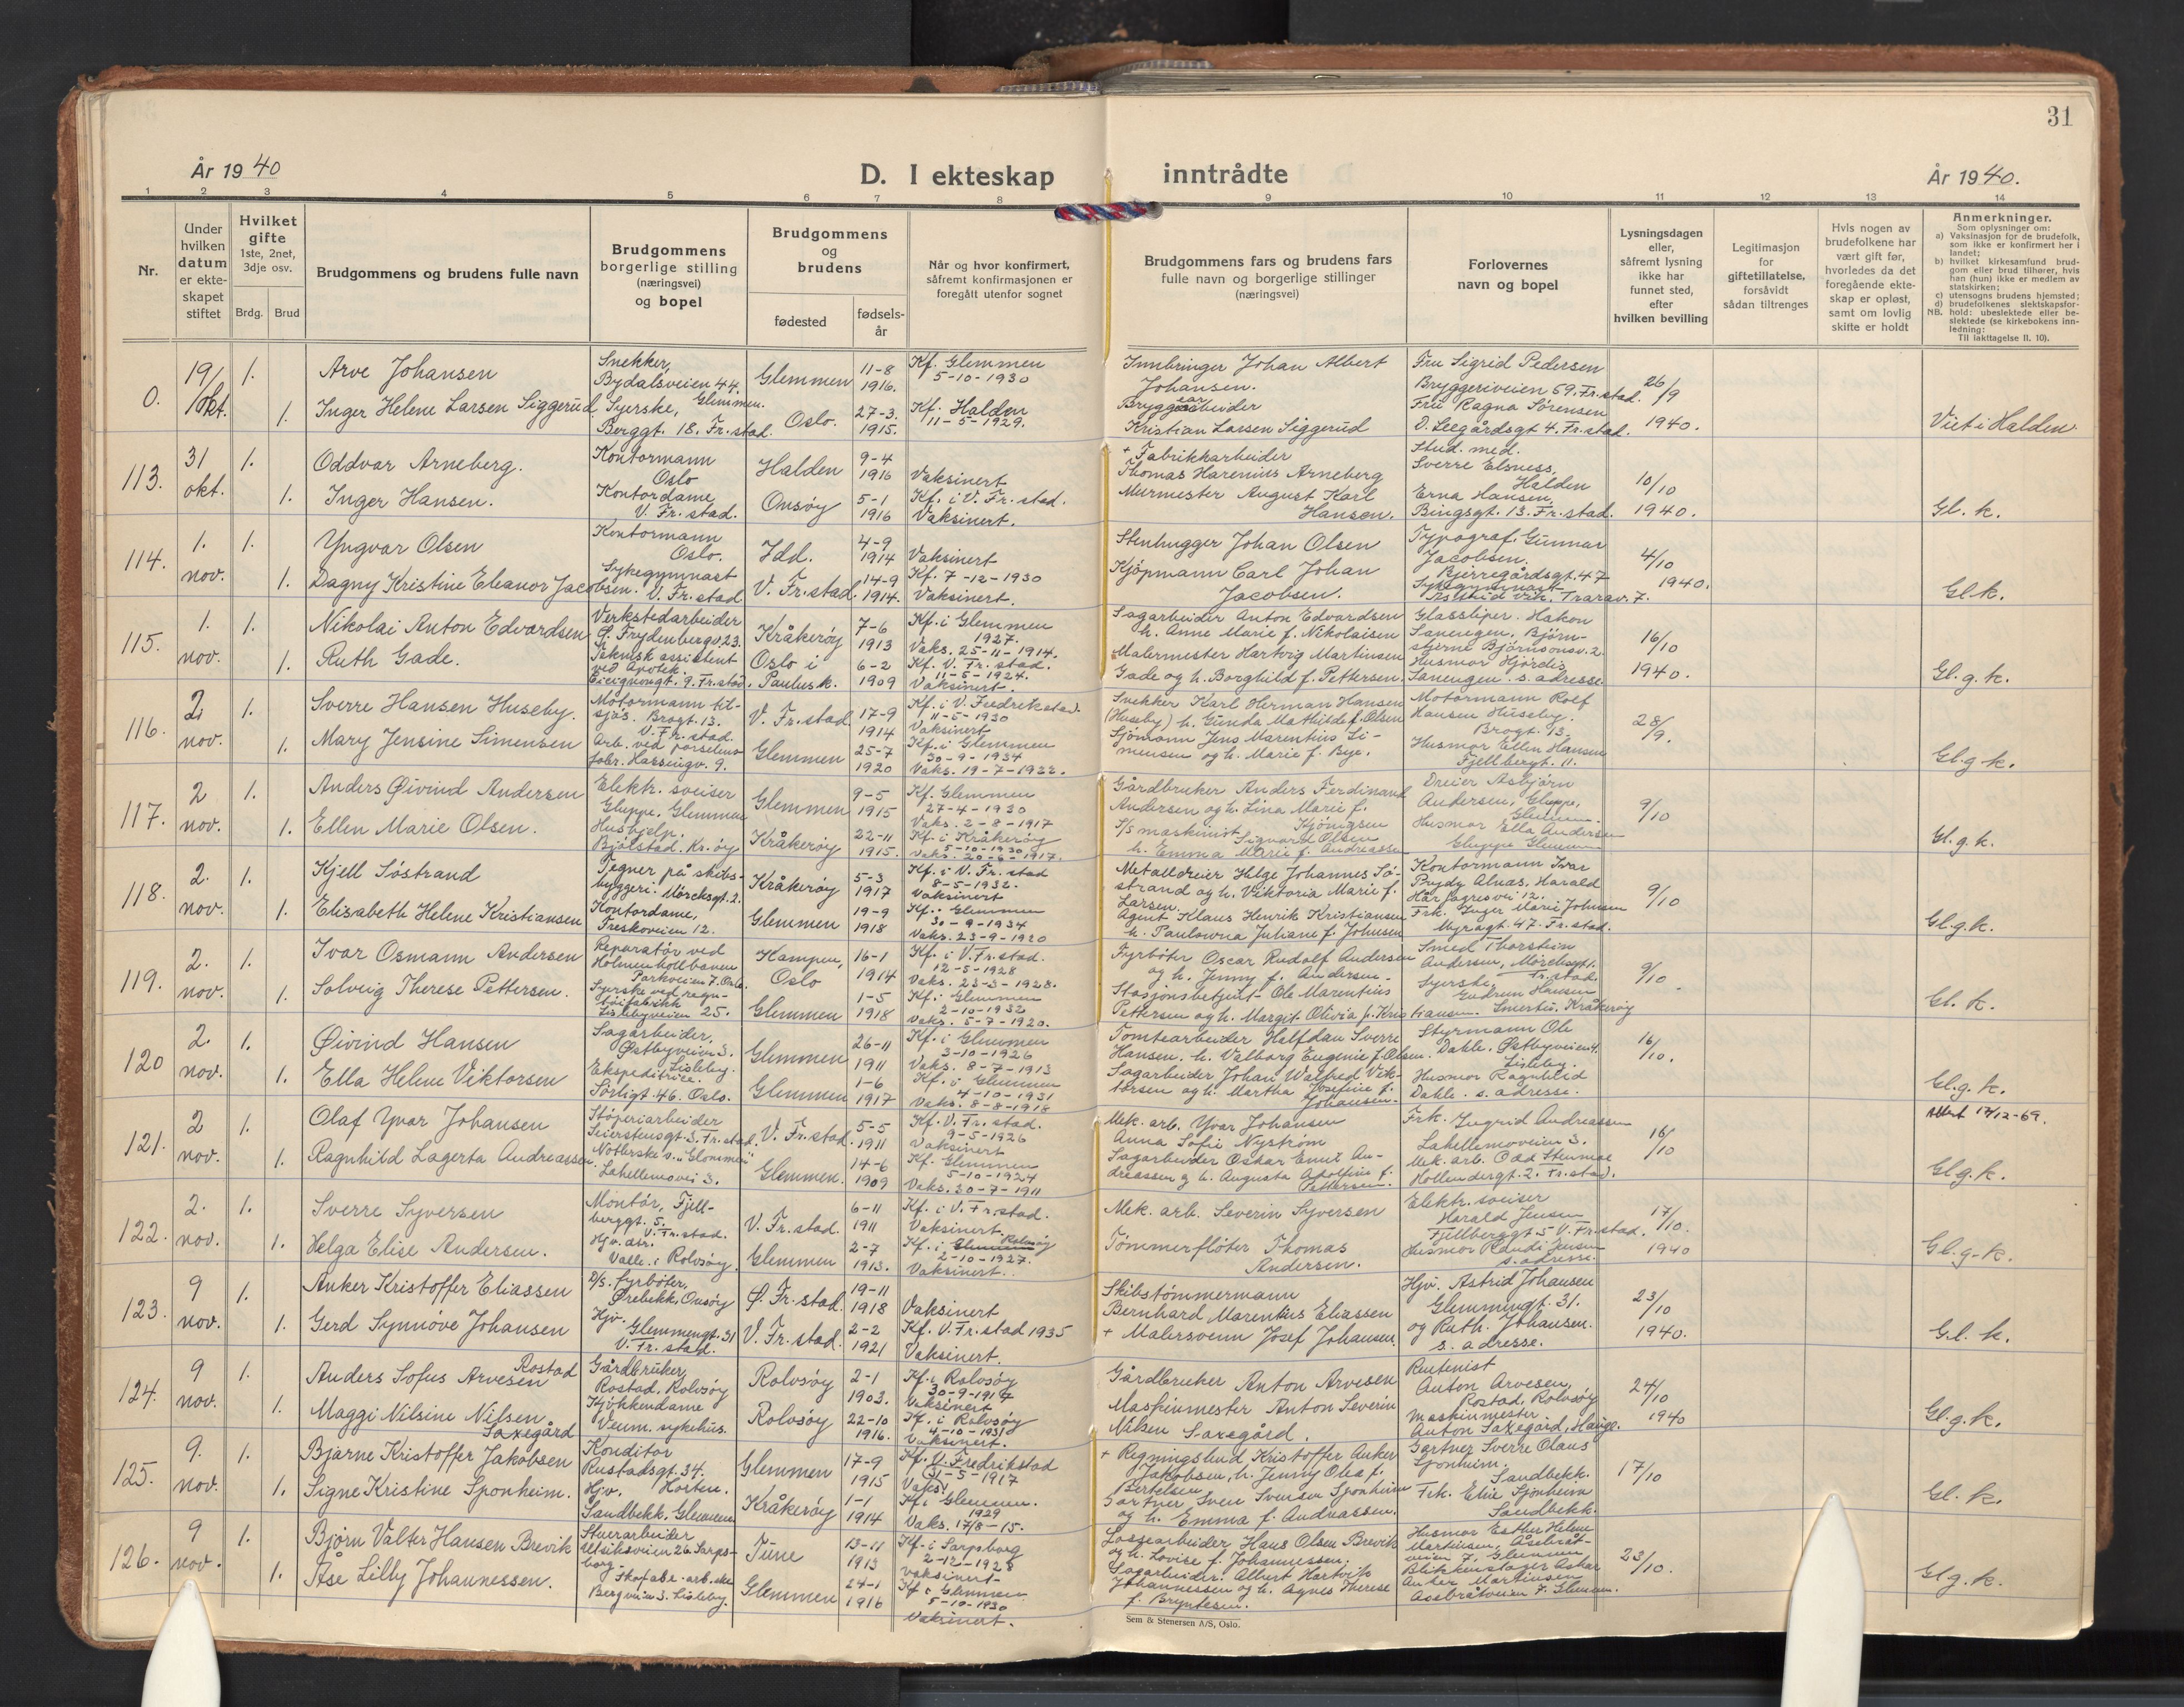 31
År 1940
D. I ekteskap inntrådte
År 1940.
1 2 3 4 5 6 7 8 9 10 11 12 13 14
Nr.
Under hvilken datum er ekteskapet stiftet
Hvilket gifte 1ste, 2net, 3dje osv.
Brdg. Brud
Brudgommens og brudens fulle navn
Brudgommens borgerlige stilling (næringsvei) og bopel
Brudgommens og brudens
fødested
fødselsår
Når og hvor konfirmert, såfremt konfirmasjonen er foregått utenfor sognet
Brudgommens fars og brudens fars fulle navn og borgerlige stillinger (næringsvei)
Forlovernes navn og bopel
Lysningsdagen eller, såfremt lysning ikke har funnet sted, efter hvilken bevilling
Legitimasjon for giftetillatelse, forsåvidt sådan tiltrenges
Hvis nogen av brudefolkene har vært gift før, hvorledes da det foregående ekteskap er opløst, samt om lovlig skifte er holdt
Anmerkninger.
Som oplysninger om:
a) Vaksinasjon for de brudefolk, som ikke er konfirmert her i landet;
b) hvilket kirkesamfund brudgom eller brud tilhører, hvis han (hun) ikke er medlem av statskirken;
c) utensogns brudens hjemsted;
d) brudefolkenes slektskapsforhold: ubeslektede eller beslektede (se kirkebokens innledning:
NB.
Til iakttagelse II. 10).
0. 19/okt. 1. Arve Johansen Snekker, Bydalsveien 44. Glemmen. Glemmen 11-8 1916. Kf. Glemmen 5-10-1930 Innbringer Johan Albert Johansen. Fru Sigrid Pedersen Bryggeriveien 59. Fr.stad. 26/9 1940.
1. Inger Helene Larsen Siggerud Syerske, Berggt. 18. Fr.stad. Oslo. 27-3. 1915. Kf. Halden 11-5-1929. Bryggearbeider Kristian Larsen Siggerud Fru Ragna Sørensen O. Leegårdsgt 4. Fr.stad. Viet i Halden
113. 31 okt. 1. Oddvar Arneberg. Kontormann Oslo Halden 9-4 1916 Vaksinert + Fabrikkarbeider Thomas Harenius Arneberg Stud. med. Sverre Elsness, Halden 10/10 1940.
1. Inger Hansen. Kontordame V. Fr.stad. Onsøy 5-1 1916 Kf. i V. Fr.stad. Vaksinert. Murmester August Karl Hansen. Erna Hansen, Bingsgt. 13. Fr.stad. Gl. k.
114. 1. nov. 1. Yngvar Olsen Kontormann Oslo. Idd. 4-9 1914 Vaksinert Stenhugger Johan Olsen Typograf Gunnar Jacobsen. Bjerregårdsgt. 47 4/10 1940.
1. Dagny Kristine Eleanor Jacobsen. Sykegymnast V. Fr.stad V. Fr.stad. 14-9 1914. Kf. 7-12-1930 Vaksinert. Kjøpmann Carl Johan Jacobsen. Sykegymnast Trarav. 7. Gl.k.
115. 1. nov. 1. Nikolai Anton Edvardsen Verkstedarbeider Ø. Frydenbergv. 23. Kråkerøy 7-6 1913 Kf. i Glemmen 1927. Vaks. 25-11-1914. Sagarbeider Anton Edvardsen h. Anne Marie f. Nikolaisen Glassliper. Håkon Sanengen, Bjørnstjerne Bjørnsonsv. 2. 16/10 1940.
1. Ruth Gade. Teknisk assistent ved Apotek. Cicignongt. 9. Fr.stad. Oslo i Paulusk. 6-2 1909 Kf. V. Fr.stad. 11-5-1924. Vaksinert. Malermester Hartvig Martinsen Gade og h. Borghild f. Pettersen. Husmor Hjørdis Sanengen. s. adresse Gl.g.k.
116. 2. nov. 1. Sverre Hansen Huseby. Motormann til sjøs. Brogt. 13. V. Fr.stad. V. Fr.stad. 17-9 1914 Kf. i V. Fredrikstad. 11-5-1930 Vaksinert Snekker Karl Herman Hansen (Huseby) h. Gunda Mathilde f. Olsen Motormann Rolf Hansen Huseby. Brogt. 13. 28/9.
1. Mary Jensine Simensen Arb. ved porselensfabr. Hassingv. 9. Glemmen 25-7 1920 Kf. i Glemmen 30-9-1934 Vaks. 19-7-1922. Sjømann Jens Marentius Simensen og h. Marie f. Bye. Husmor Ellen Hansen Fjellbergt. 11. Gl.g.k.
117. 2 nov. 1. Anders Øivind Andersen Elektr. sveiser Gluppe, Glemmen Glemmen 9-5 1915 Kf. Glemmen 27-4-1930 Vaks. 2-8-1917 Gårdbruker Anders Ferdinand Andersen og h. Lina Marie f. Kjönigsen Dreier Asbjørn Andersen, Gluppe, Glemmen. 9/10
1. Ellen Marie Olsen. Hushjelp. Bjølstad. Kr.øy Kråkerøy 22-11 1915. Kf. i Kråkerøy 5-10-1930 Vaks. 20-6-1917. S/s maskinist Sigvard Olsen h. Emma Marie f. Andreassen Husmor Ella Andersen Gluppe Glemmen Gl.g.k.
118. 2. nov. 1. Kjell Söstrand Tegner på skibsbyggeri. Mörcksgt. 2. Kråkerøy 5-3 1917 Kf. i V. Fr.stad 8-5-1932. Vaksinert Metalldreier Helge Johannes Söstrand og h. Viktoria Marie f. Larsen. Kontormann Ivar Brydy Alnæs, Harald Hårfagresvei 12. 9/10
1. Elisabeth Helene Kristiansen Kontordame, Freskoveien 12. Glemmen 19-9 1918 Kf. i Glemmen 30-9-1934 Vaks. 23-9-1920 Agent Klaus Henrik Kristiansen h. Paulowna Juliane f. Johnsen Frk. Inger Marie Johnsen Myragt. 47. Fr.stad. Gl.g.k.
119. 2. nov. 1. Ivar Osmann Andersen Reparatør ved Holmenkollbanen Parkveien 7. Oslo. Kampen, Oslo 16-1 1914 Kf. i V. Fr.stad. 12-5-1928 Vaks. 23-3-1928. Fyrbøter Oscar Rudolf Andersen og h. Jenny f. Andersen. Smed Thorstein Andersen, Mörcksgt. Fr.stad. 9/10
1. Solveig Therese Pettersen. Syerske ved regntöifabrikk Lislebyveien 25. Glemmen 1-5 1918 Kf. i Glemmen 2-10-1932 Vaks. 5-7-1920. Stasjonsbetjent Ole Marentius Pettersen og h. Margit Olivia f. Kristiansen. Syerske, Gudrun Hansen Smertu. Kråkerøy Gl. k.
120 2. nov. 1. Øivind Hansen Sagarbeider, Østbyveien 3. Lisleby. Glemmen 26-11 1911 Kf. i Glemmen 3-10-1926 Vaks. 8-7-1913 Tomtearbeider Halfdan Sverre Hansen. h. Valborg Eugenie f. Olsen. Styrmann Ole Dahle. Østbyveien 4. Lisleby. 16/10.
1. Ella Helene Viktorsen Ekspeditrice. Sörligt. 46. Oslo. Glemmen 1-6 1917 Kf. i Glemmen 4-10-1931 Vaks. 8-8-1918 Sagarbeider Johan Walfred Viktorsen og h. Martha Josefine f. Johansen. Husmor Ragnhild Dahle. s. adresse. Gl.g.k.
121. 2 nov. 1. Olaf Yvar Johansen Støperiarbeider Seierstensgt. 3. Fr.stad. V. Fr.stad 5-5 1911 Kf. V. Fr.stad. 9-5-1926 Vaksinert Mek. arb. Yvar Johansen Anna Sofie Nystrøm Frk. Ingrid Andreassen Lahellemoveien 3. 16/10 Attest 17/12-69.
1. Ragnhild Lagerta Andreassen. Notterske v. "Glommen" Lahellemovei 3. Glemmen. 14-6 1909 Kf. Glemmen 5-10-1924 Vaks. 30-7-1911 Sagarbeider Oskar Emil Andreassen g h. Augusta Adolfine f. Pettersen. Mek. arb. Odd Stenmoe Hollendergt. 2. Fr.stad. Gl.g.k.
122. 2. nov. 1. Sverre Syversen Montör, Fjellberggt. 5. V. Fr.stad. V. Fr.stad. 6-11 1911 Kf. i V. Fr.stad. Vaksinert Mek. arb. Severin Syversen Elektr. sveiser Harald Jensen Fjellberggt 5 V. Fr.stad. 17/10. 1940
1. Helga Elise Andersen. Hjv. dtr. Valle i Rolvsøy. Glemmen 2-7 1913. Kf. i Glemmen Rolvsøy 2-10-1927. Vaksinert. Tömmerflöter Thomas Andersen. Husmor Randi Jensen s. adresse. Gl.g.k.
123. 9 nov. 1. Anker Kristoffer Eliassen D/s. fyrböter, Ørebekk, Onsøy Ø. Fr.stad. 19-11 1918 Vaksinert Skibstömmermann Bernhard Marentius Eliassen Hjv. Astrid Johansen Glemmengt. 31. 23/10 1940.
1. Gerd Synnöve Johansen Hjv. Glemmengt. 31 V. Fr.stad. V. Fr.stad. 2-2 1921 Kf. V. Fr.stad 1935 Vaksinert. + Malersvenn Josef Johansen. og Ruth. Johansen. s. adresse. Gl. k.
124. 9 nov. 1. Anders Sofus Arvesen Rostad Gårdbruker, Rostad, Rolvsøy Rolvsöy 2-1 1903. Kf. i Rolvsöy 30-9-1917 Vaksinert Gårdbruker Anton Arvesen Rentenist Anton Arvesen, Rostad, Rolvsöy 24/10 1940
1. Maggi Nilsine Nilsen Saxegård Kjökkendame Veum. sykehus. Rolvsöy 22-10 1916. Kf. i Rolvsöy 4-10-1931 Vaksinert. Maskinmester Anton Severin Nilsen Saxegård. Maskinmester Anton Saxegård, Hauge. Gl.g.k.
125. 9. nov. 1. Bjarne Kristoffer Jakobsen Konditor Rustadsgt. 34. Horten. Glemmen 17-9 1915 Kf. V. Fredrikstad 31-5-1917 Vaks! + Regningsbud Kristoffer Anker Jakobsen, h. Jenny Olea f. Bertelsen. Gartner Sverre Olaus Sponheim. Sandbekk. 17/10
1. Signe Kristine Sponheim. Hjv. Sandbekk, Glemmen Kråkerøy 1-1 1914 Kf. i Glemmen. 1929 Vaks. 17/8-15. Gartner Sven Svensen Sponheim og h. Emma f. Andreassen. Frk. Elise Sponheim Sandbekk. Gl. k.
126. 9 nov. 1. Bjørn Valter Hansen Brevik Stuerarbeider Utsiktsveien 26 Sarpsborg. Tune 13-11 1913 Kf. i Sarpsborg 2-12-1928 Vaksinert Lossearbeider Hans Olsen Brevik og h. Lovise f. Johannessen. Husmor Esther Helene Martinsen, Åsebråtveien 7, Glemmen 23/10.
1. Åse Lilly Johannessen. Skofabr. arb.ske Bergveien 3. Lisleby. Glemmen 24-1 1916 Kf. i Glemmen 5-10-1930 Vaksinert. Sagarbeider. Albert Hartvik Johannessen og h. Agnes Therese f. Bryntesen. Blikkenslager Asbar Anker Martinsen Aasebråtveien 7. Glemmen. Gl.g.k.
Sem & Stenersen A/S, Oslo.